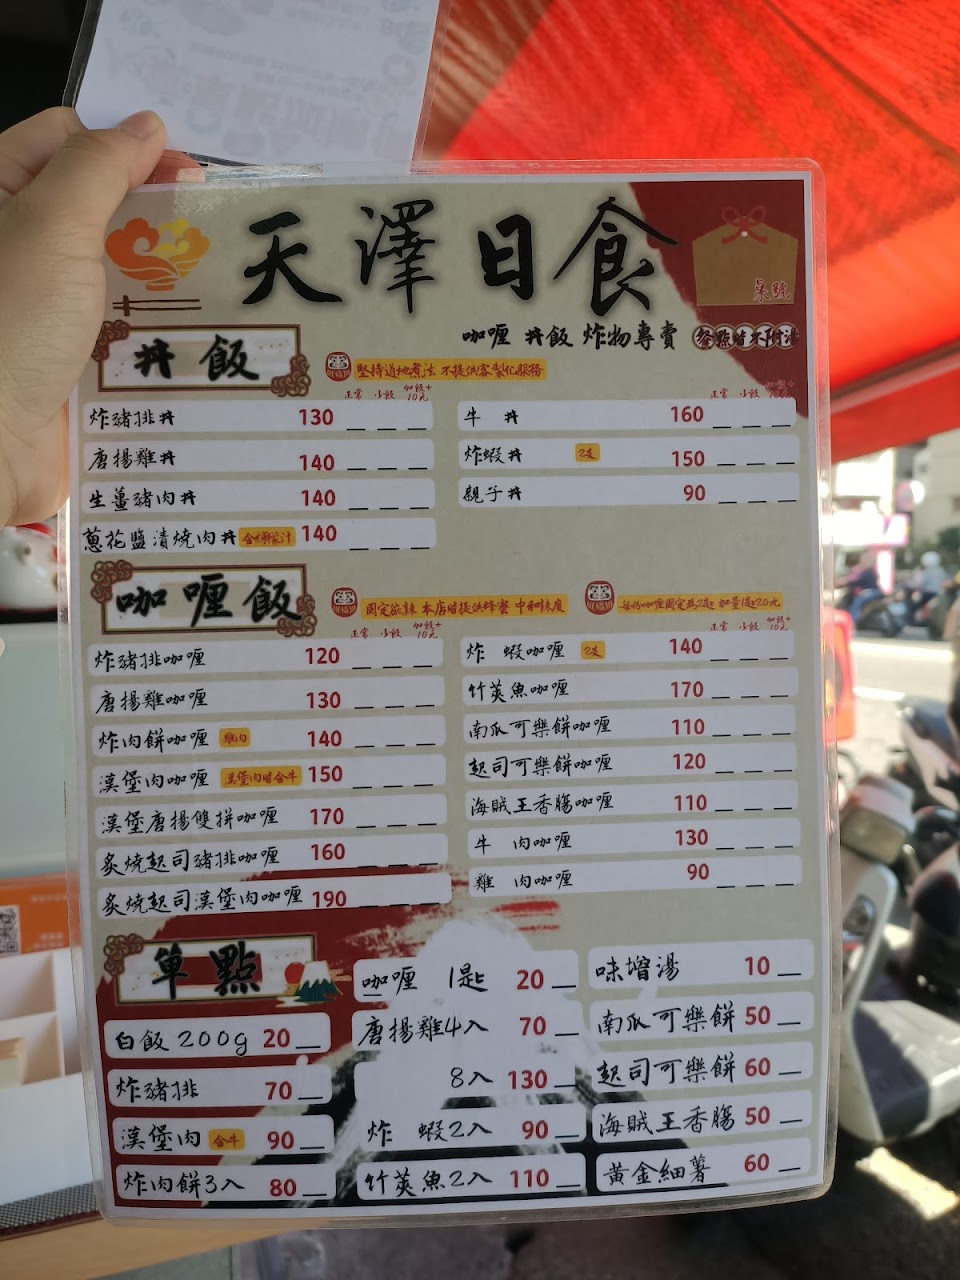 天澤日食
桌號
咖喱 丼飯 炸物專賣
餐點皆不附湯
丼飯
堅持道地煮法 不提供客製化服務
正常 小飯 加飯+10元
正常 小飯 加飯+10元
炸豬排丼 130
唐揚雞丼 140
生薑豬肉丼 140
蔥花鹽漬燒肉丼 140
牛 丼 160
炸蝦丼 2支 150
親子丼 90
咖喱飯
固定微辣 本店皆提供蜂蜜 中和辣度
每份咖喱固定為2匙 加量1匙20元
正常 小飯 加飯+10元
正常 小飯 加飯+10元
炸豬排咖喱 120
唐揚雞咖喱 130
炸肉餅咖喱 雞肉 140
漢堡肉咖喱 漢堡肉皆含牛 150
漢堡唐揚雙拼咖喱 170
炙燒起司豬排咖喱 160
炙燒起司漢堡肉咖喱 190
炸 蝦咖喱 2支 140
竹莢魚咖喱 170
南瓜可樂餅咖喱 110
起司可樂餅咖喱 120
海賊王香腸咖喱 110
牛 肉咖喱 130
雞 肉咖喱 90
單點
白飯200g 20
炸豬排 70
漢堡肉 含牛 90
炸肉餅3入 80
咖喱 1匙 20
唐揚雞4入 70
8入 130
炸 蝦2入 90
竹莢魚2入 110
味增湯 10
南瓜可樂餅 50
起司可樂餅 60
海賊王香腸 50
黃金細薯 60